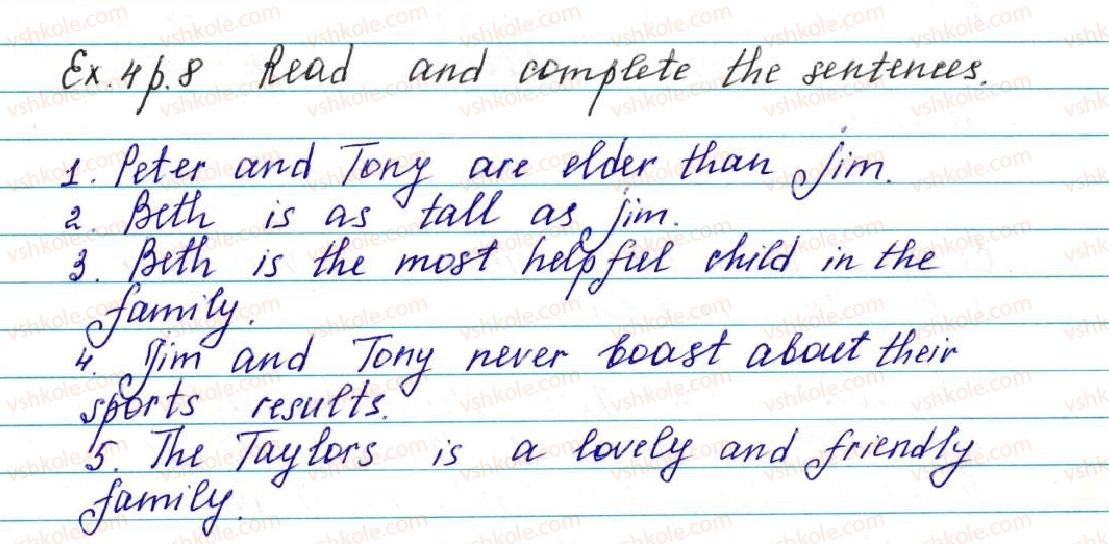 Ex. 4 p. 8 Read and complete the sentences.
1. Peter and Tony are elder than Jim.
2. Beth is as tall as Jim.
3. Beth is the most helpful child in the
family.
4. Jim and Tony never boast about their
sports results.
5. The Taylors is a lovely and friendly
family.